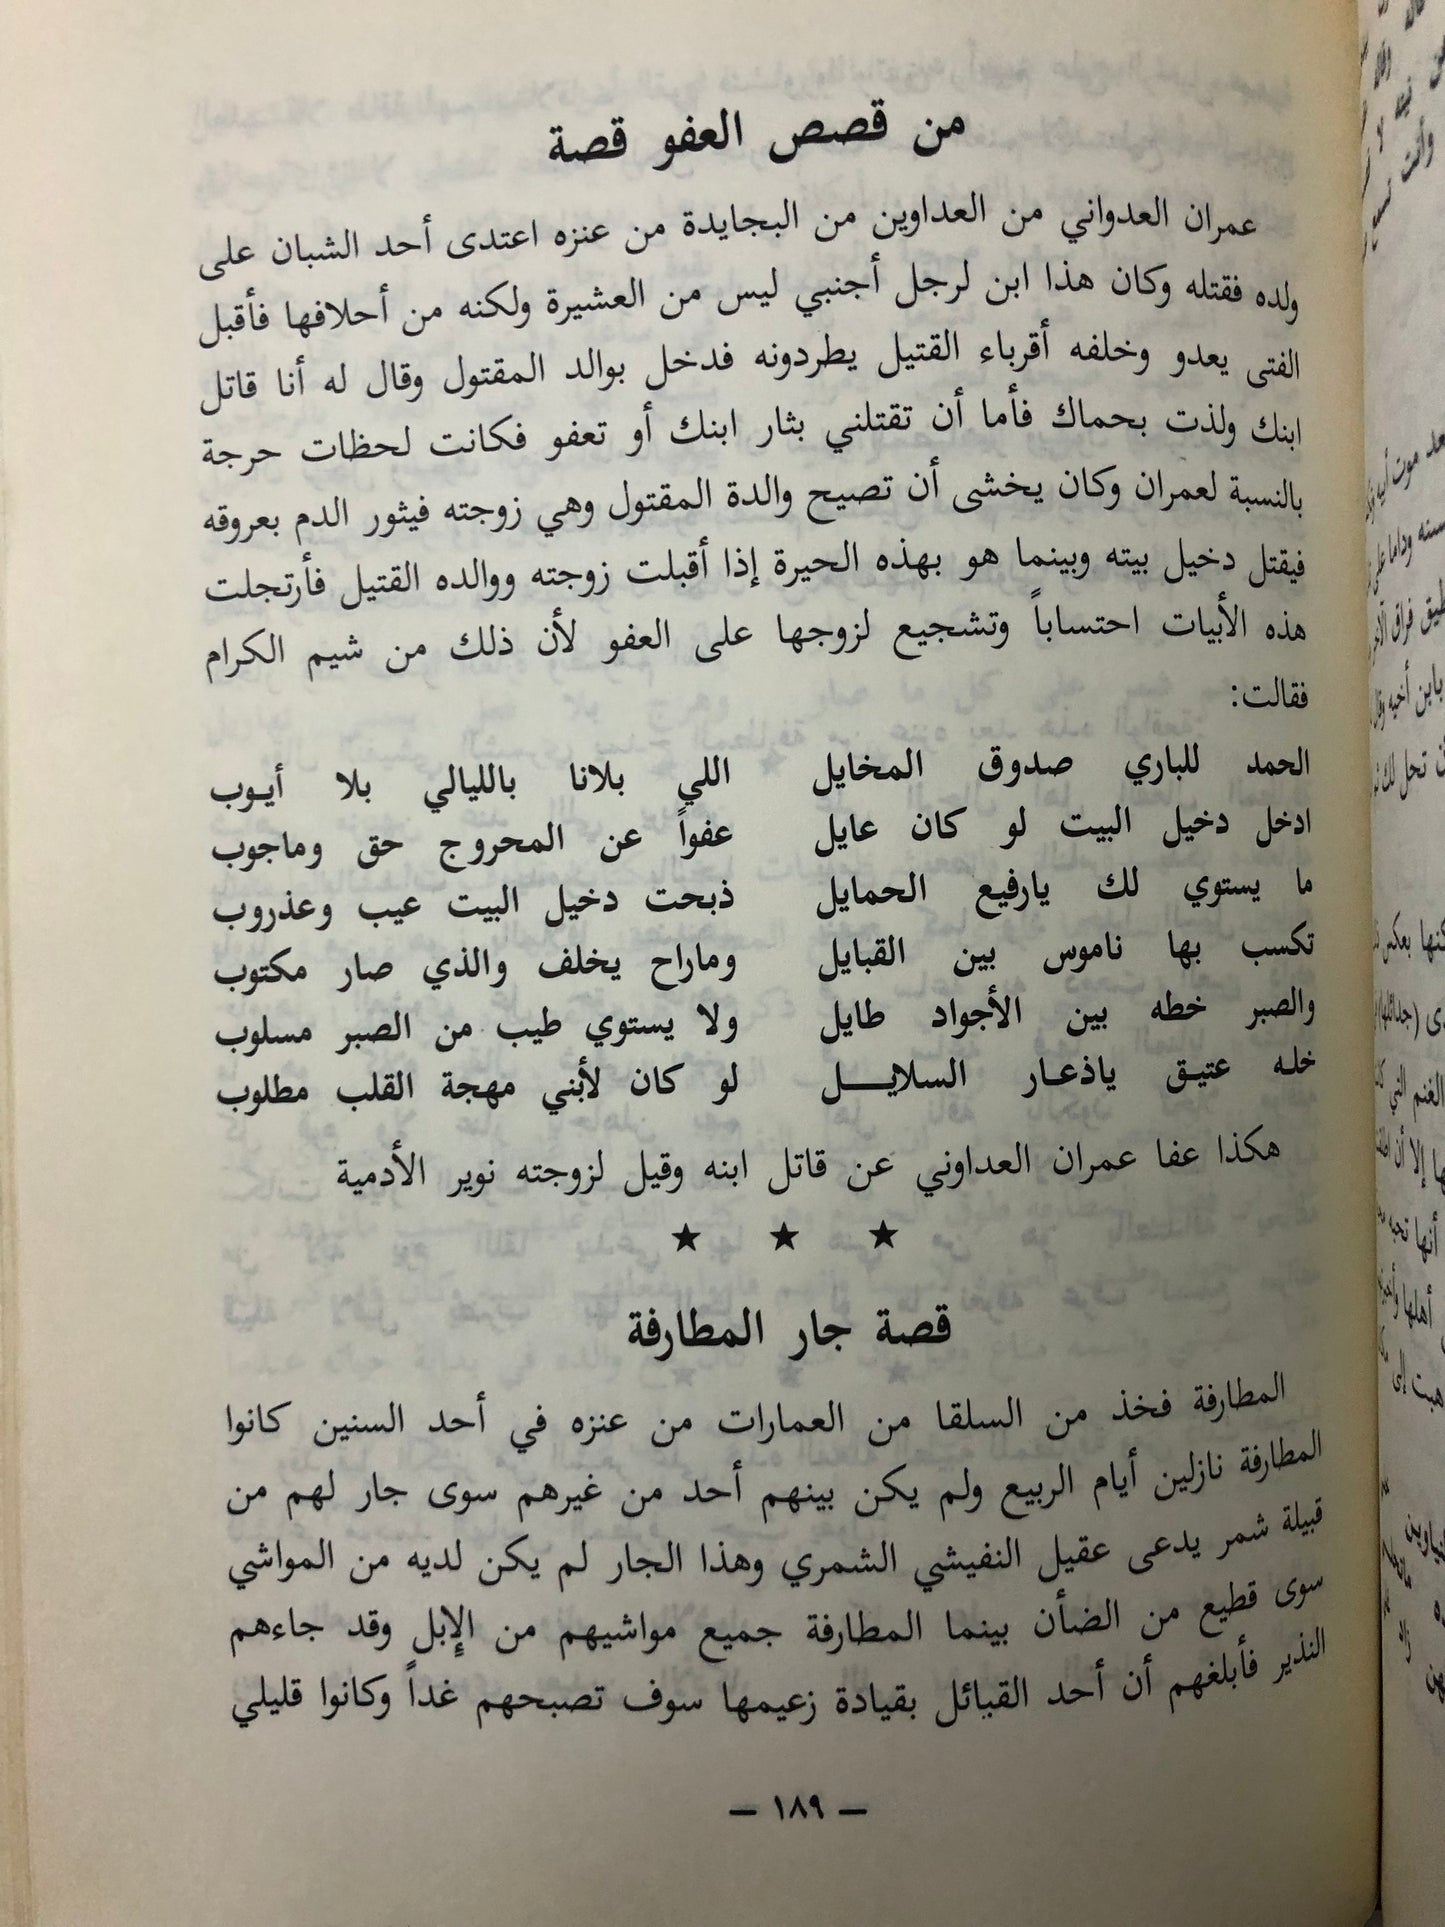 من قصص العفو قصة
عمران العدواني من العداوين من البجايدة من عنزه اعتدى أحد الشبان على
ولده فقتله وكان هذا ابن لرجل أجنبي ليس من العشيرة ولكنه من أحلافها فأقبل
الفتى يعدو وخلفه أقرباء القتيل يطردونه فدخل بوالد المقتول وقال له أنا قاتل
ابنك ولذت بحماك فأما أن تقتلني بثار ابنك أو تعفو فكانت لحظات حرجة
بالنسبة لعمران وكان يخشى أن تصيح والدة المقتول وهي زوجته فيثور الدم بعروقه
فيقتل دخيل بيته وبينما هو بهذه الحيرة إذا أقبلت زوجته ووالده القتيل فأرتجلت
هذه الأبيات احتساباً وتشجيع لزوجها على العفو لأن ذلك من شيم الكرام
فقالت:
الحمد للباري صدوق المخايل اللي بلانا بالليالي بلا أيوب
ادخل دخيل البيت لو كان عايل عفواً عن المحروج حق وماجوب
ما يستوي لك يارفيع الحمايل ذبحت دخيل البيت عيب وعذروب
تكسب بها ناموس بين القبايل وماراح يخلف والذي صار مكتوب
والصبر خطه بين الأجواد طايل ولا يستوي طيب من الصبر مسلوب
خله عتيق ياذعار السلايل لو كان لأبني مهجة القلب مطلوب
هكذا عفا عمران العداوني عن قاتل ابنه وقيل لزوجته نوير الأدمية
★ ★ ★
قصة جار المطارفة
المطارفة فخذ من السلقا من العمارات من عنزه في أحد السنين كانوا
المطارفة نازلين أيام الربيع ولم يكن بينهم أحد من غيرهم سوى جار لهم من
قبيلة شمر يدعى عقيل النفيشي الشمري وهذا الجار لم يكن لديه من المواشي
سوى قطيع من الضأن بينما المطارفة جميع مواشيهم من الإبل وقد جاءهم
النذير فأبلغهم أن أحد القبائل بقيادة زعيمها سوف تصبحهم غداً وكانوا قليلي
— ١٨٩ —